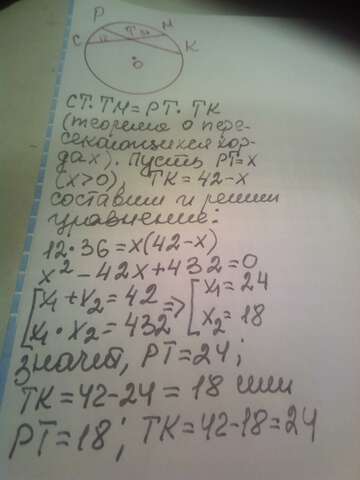 P
M
C
T
K
O
CT·TM=PT·TK
(теорема о пере-
секающихся хор-
дах). Пусть PT=x
(x>0), TK=42-x
составим и решим
уравнение:
12·36=x(42-x)
x²-42x+432=0
[x₁+x₂=42 => [x₁=24
x₁·x₂=432 x₂=18
значит, PT=24;
TK=42-24=18 или
PT=18; TK=42-18=24